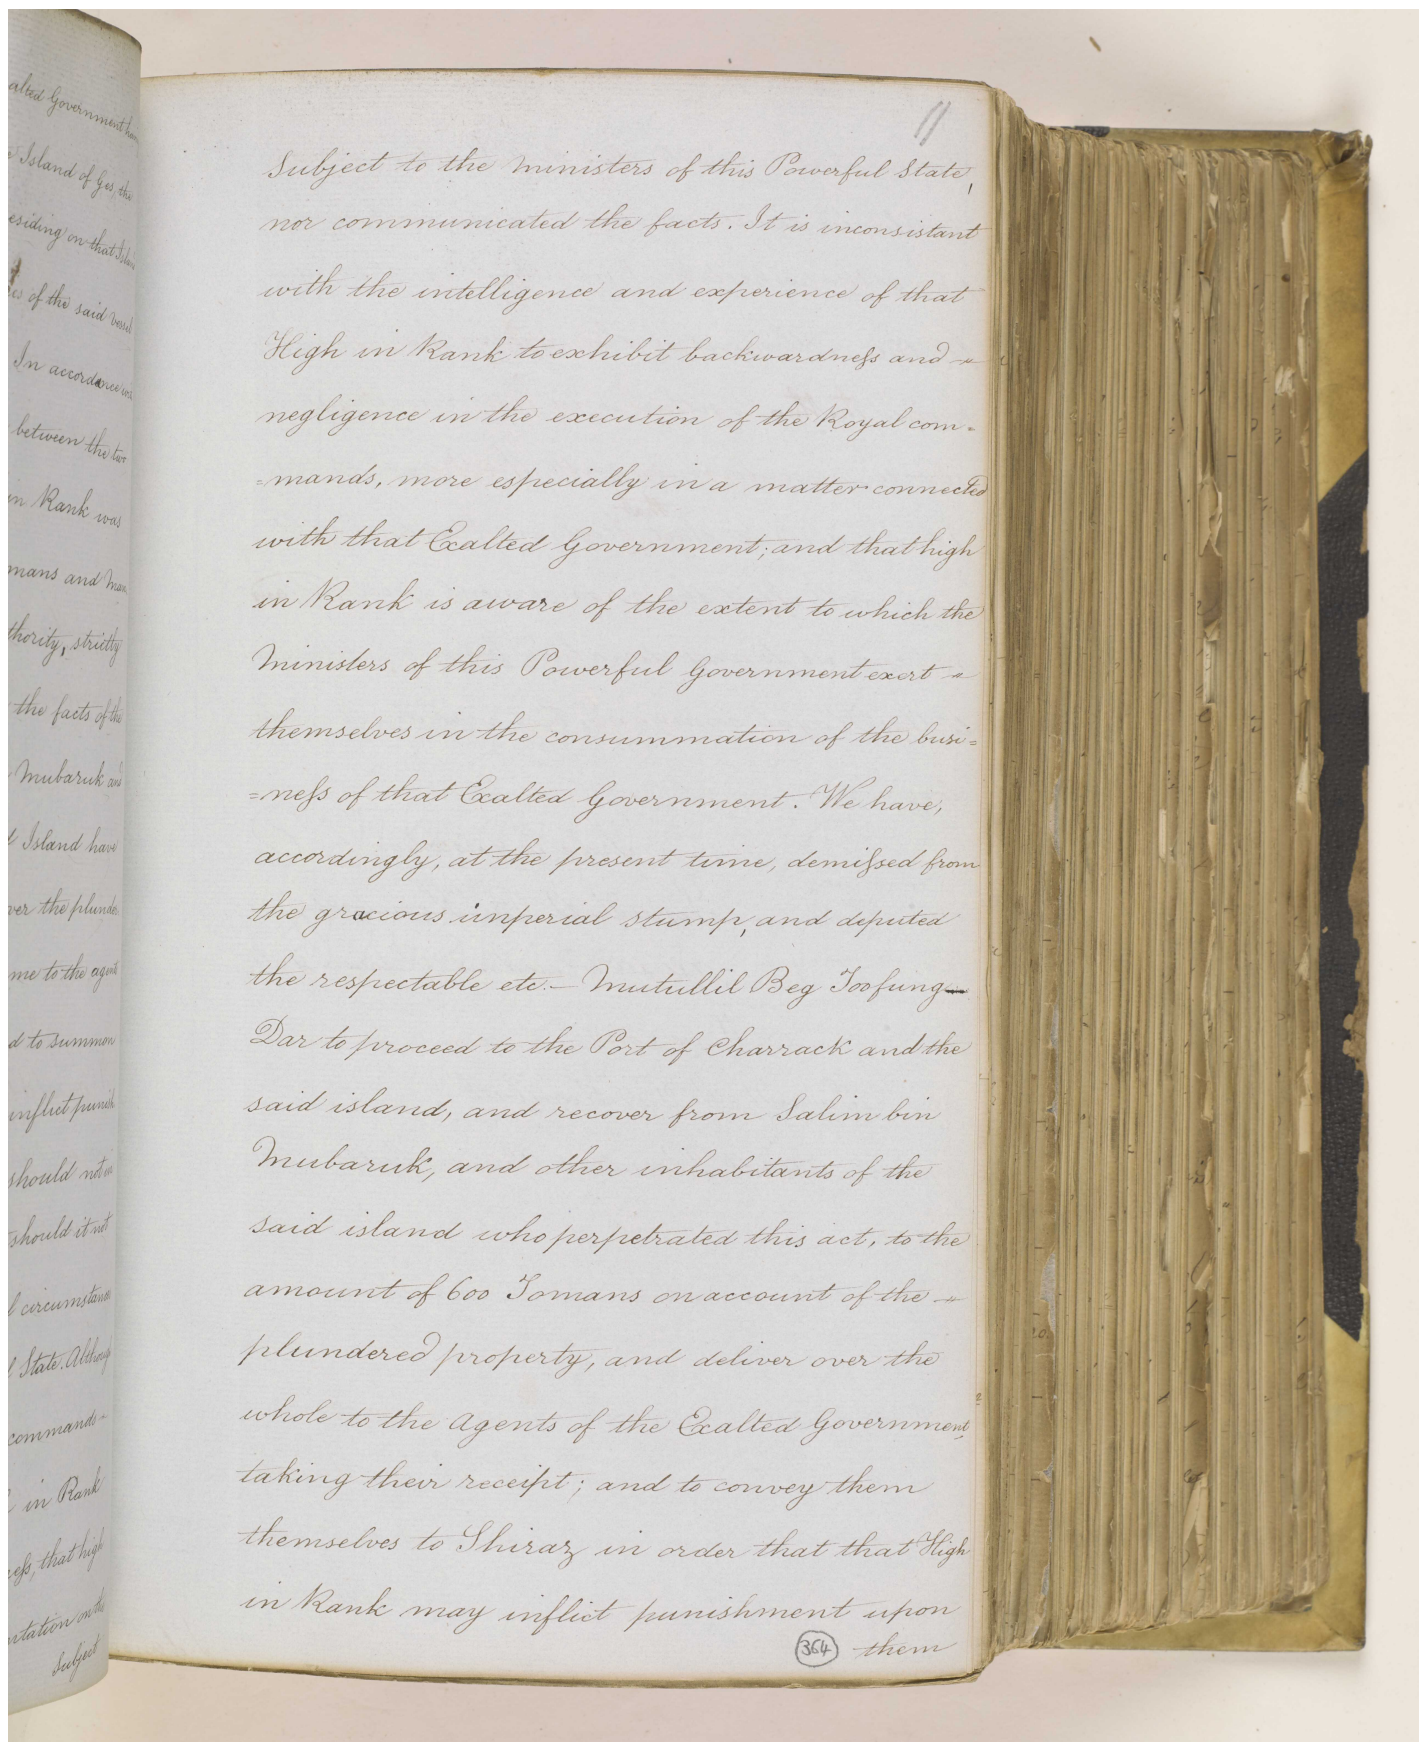 alted Government
Island of Ges, the
esiding on that Island
es of the said Vessel
In accordance
between the two
in Rank was
mans and
thority, strictly
the facts of the
Mubaruk and
Island have
ver the plunde
me to the agents
d to summon
inflict punish
should not
should it not
circumstances
State. Although
commands
in Rank
ess, that high
ntation on the
Subject
11
Subject to the Ministers of this Powerful State,
nor communicated the facts. It is inconsistant
with the intelligence and experience of that
High in Rank to exhibit backwardness and -"
negligence in the execution of the Royal com=
=mands, more especially in a matter connected
with that Exalted Government; and that high
in Rank is aware of the extent to which the
Ministers of this Powerful Government exert -"
themselves in the consummation of the busi=
=ness of that Exalted Government. We have,
accordingly, at the present time, demissed from
the gracious imperial stump, and deputed
the respectable etc. - Mutullil Beg Toofung
Dar to proceed to the Port of Charrack and the
said island, and recover from Salim bin
Mubaruk, and other inhabitants of the
said island who perpetrated this act, to the
amount of 600 Tomans on account of the -"
plundered property, and deliver over the
whole to the Agents of the Exalted Government,
taking their receipt; and to convey them
themselves to Shiraz in order that that High
in Rank may inflict punishment upon
364 them